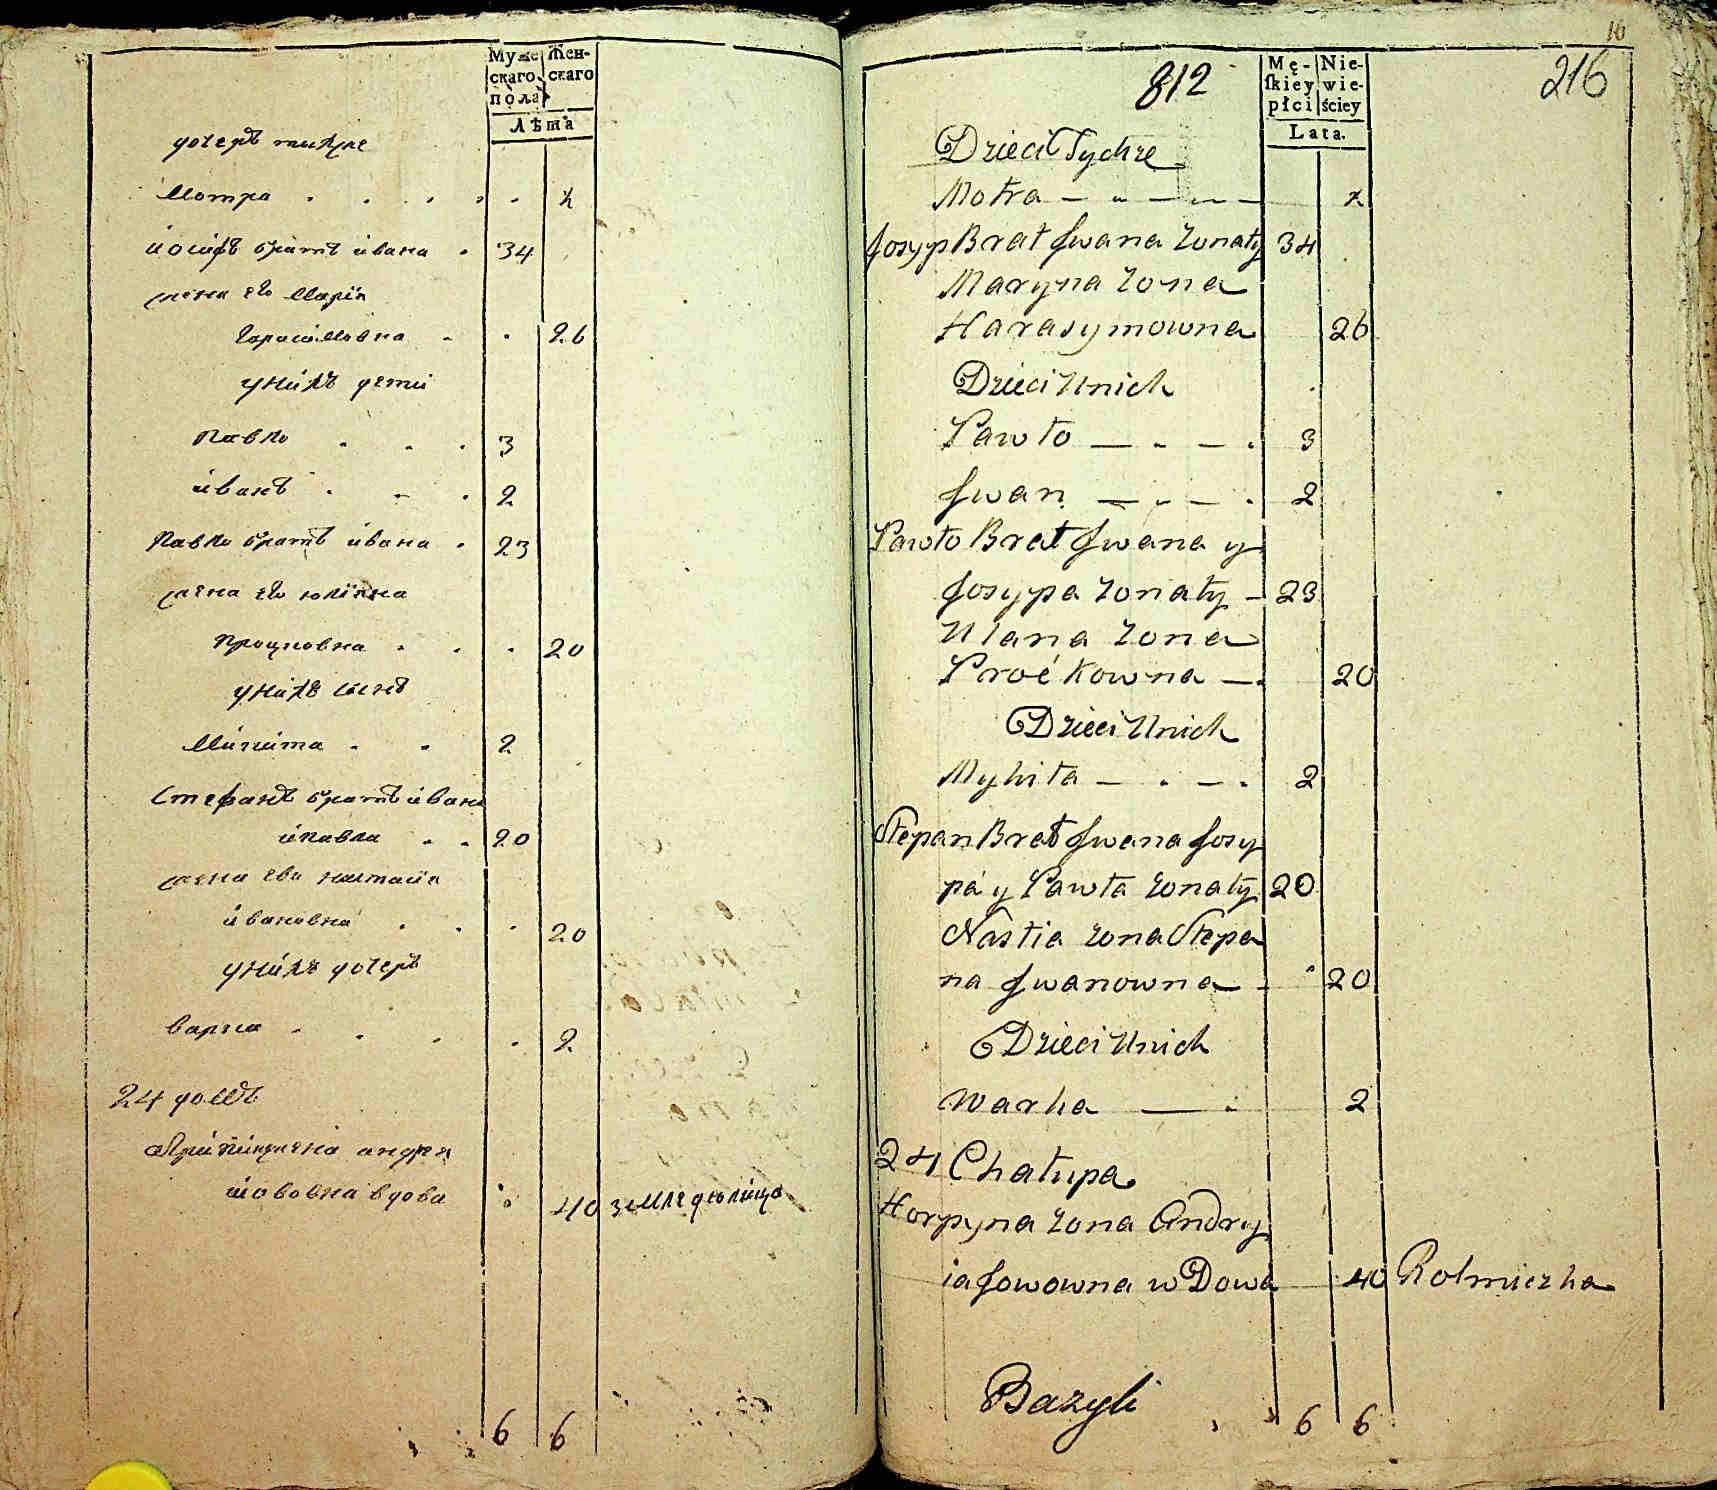 Муже
скаго
пола
Жен-
скаго
Лѣта
дочерь тихре
Мотра . . . . . 2
иосифъ братъ ивана . 34
жена его Марія
Гарасимовна . . 26
унихъ дети
Павло . . . 3
иванъ . - . 2
Павло братъ ивана . 23
жена его юліяна
Процковна . . . 20
унихъ сынъ
Микита . . 2
Стефанъ братъ ивана
ипавла . . 20
жена ево настасия
ивановна . . . 20
унихъ дочерь
варка . . . . 2
24 домъ
андрея
иововна вдова 40
6 6
10
812
216
Mę-
skiey
płci
Nie-
wie-
ściey
Lata.
Dzieci Tychże
Motra — „ — „ — 2
Josyp Brat Jwana żonaty 34
Maryna żona
Harasymowna 26
Dzieci Unich
Pawło — . — . 3
Jwan — . — . 2
Pawło Brat Jwana y
Josypa żonaty — 23
Ulana żona
Proćkowna —. 20
Dzieci Unich
Mykita — . — . 2
Stepan Brat Jwana Josy
pa y Pawła żonaty 20
Nastia żona Stepa
na Jwanowna - 20
Dzieci Unich
Warka — . 2
24 Chałupa
Horpyna żona Andry
ia Jowowna wDowa 40 Rolniczka
Bazyli
6 6